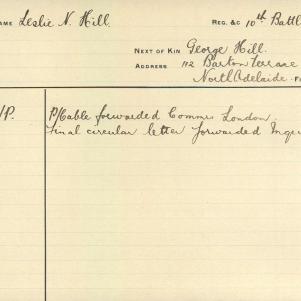 NAME Leslie N. Hill. REG. &C 10th Battl
NEXT OF KIN George Hill.
ADDRESS 112 Barton Terrace
North Adelaide
/P. P/Cable forwarded Commrs London.
Final circular letter forwarded